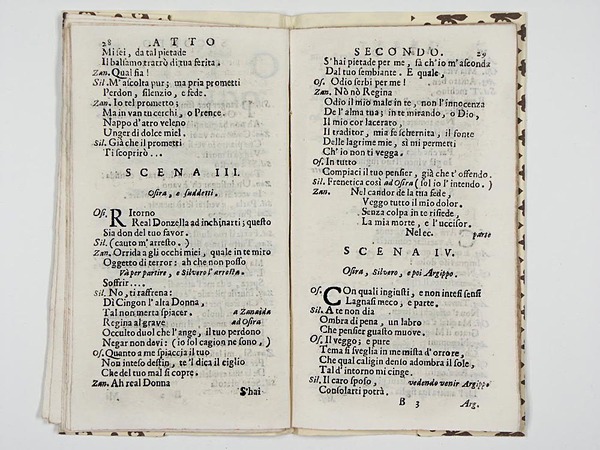 28 ATTO
Mi sei, da tal pietade
Il balsamo trarrò di tua ferita.
Zan. Qual sia!
Sil. M'ascolta pur; ma pria prometti
Perdon, silenzio, e fede.
Zan. Io tel prometto;
Ma in van tu cerchi, o Prence.
Nappo d'atro veleno
Unger di dolce miel.
Sil. Già che il prometti
Ti scoprirò...
SCENA III.
Osira, e suddetti.
Os. Ritorno
Real Donzella ad inchinarti; questo
Sia don del tuo favor.
Sil. (cauto m'arresto.)
Zan. Orrida a gli occhi miei, quale in te miro
Oggetto di terror: ah che non posso
Và per partire, e Silvero l'arresta.
Soffrir....
Sil. No, ti raffrena:
Di Cingon l'alta Donna,
Tal non merta spiacer. a Zanaida
Regina al grave ad Osira
Occulto duol che l'ange, il tuo perdono
Negar non devi: (io sol cagion ne sono.)
Os. Quanto a me spiaccia il tuo
Non inteso destin, te 'l dica il ciglio
Che del tuo mal si copre.
Zan. Ah real Donna
S'hai
SECONDO. 29
S'hai pietade per me, fà ch'io m'asconda
Dal tuo sembiante. E quale,
Os. Odio serbi per me!
Zan. Nò nò Regina
Odio il mio male in te, non l'innocenza
De l'alma tua; in te mirando, o Dio,
Il mio cor lacerato,
Il traditor, mia fe schernita, il fonte
Delle lagrime mie, sì mi permetti
Ch'io non ti vegga.
Os. In tutto
Compiaci il tuo pensier, già che t'offendo.
Sil. Frenetica così ad Osira (sol io l'intendo.)
Zan. Nel candor de la tua fede,
Veggo tutto il mio dolor.
Senza colpa in te risiede,
La mia morte, e l'uccisor.
Nel ec. parte
SCENA IV.
Osira, Silvero, e poi Argippo.
Os. Con quali ingiusti, e non intesi sensi
Lagnasi meco, e parte.
Sil. A te non dia
Ombra di pena, un labro
Che pensier guasto muove.
Os. Il veggo; e pure
Tema si sveglia in me mista d'orrore,
Che qual caligin denso adombra il sole,
Tal d'intorno mi cinge.
Sil. Il caro sposo, vedendo venir Argippo
Consolarti potrà.
B 3 Arg.